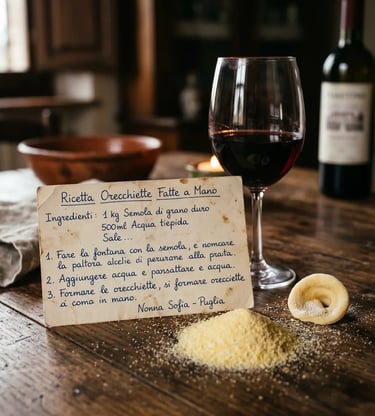 Ricetta Orecchiette Fatte a Mano
Ingredienti: 1 kg Semola di grano duro
500ml Acqua tiepida
Sale...
1. Fare la fontana con la semola, e nomcare
la pattora alcelie di perurome alla praita.
2. Aggiungere acqua e porsattare e acqua.
3. Formare le orecchiette, si formare oreciette
a como in mano.
Nonna Sofia - Puglia